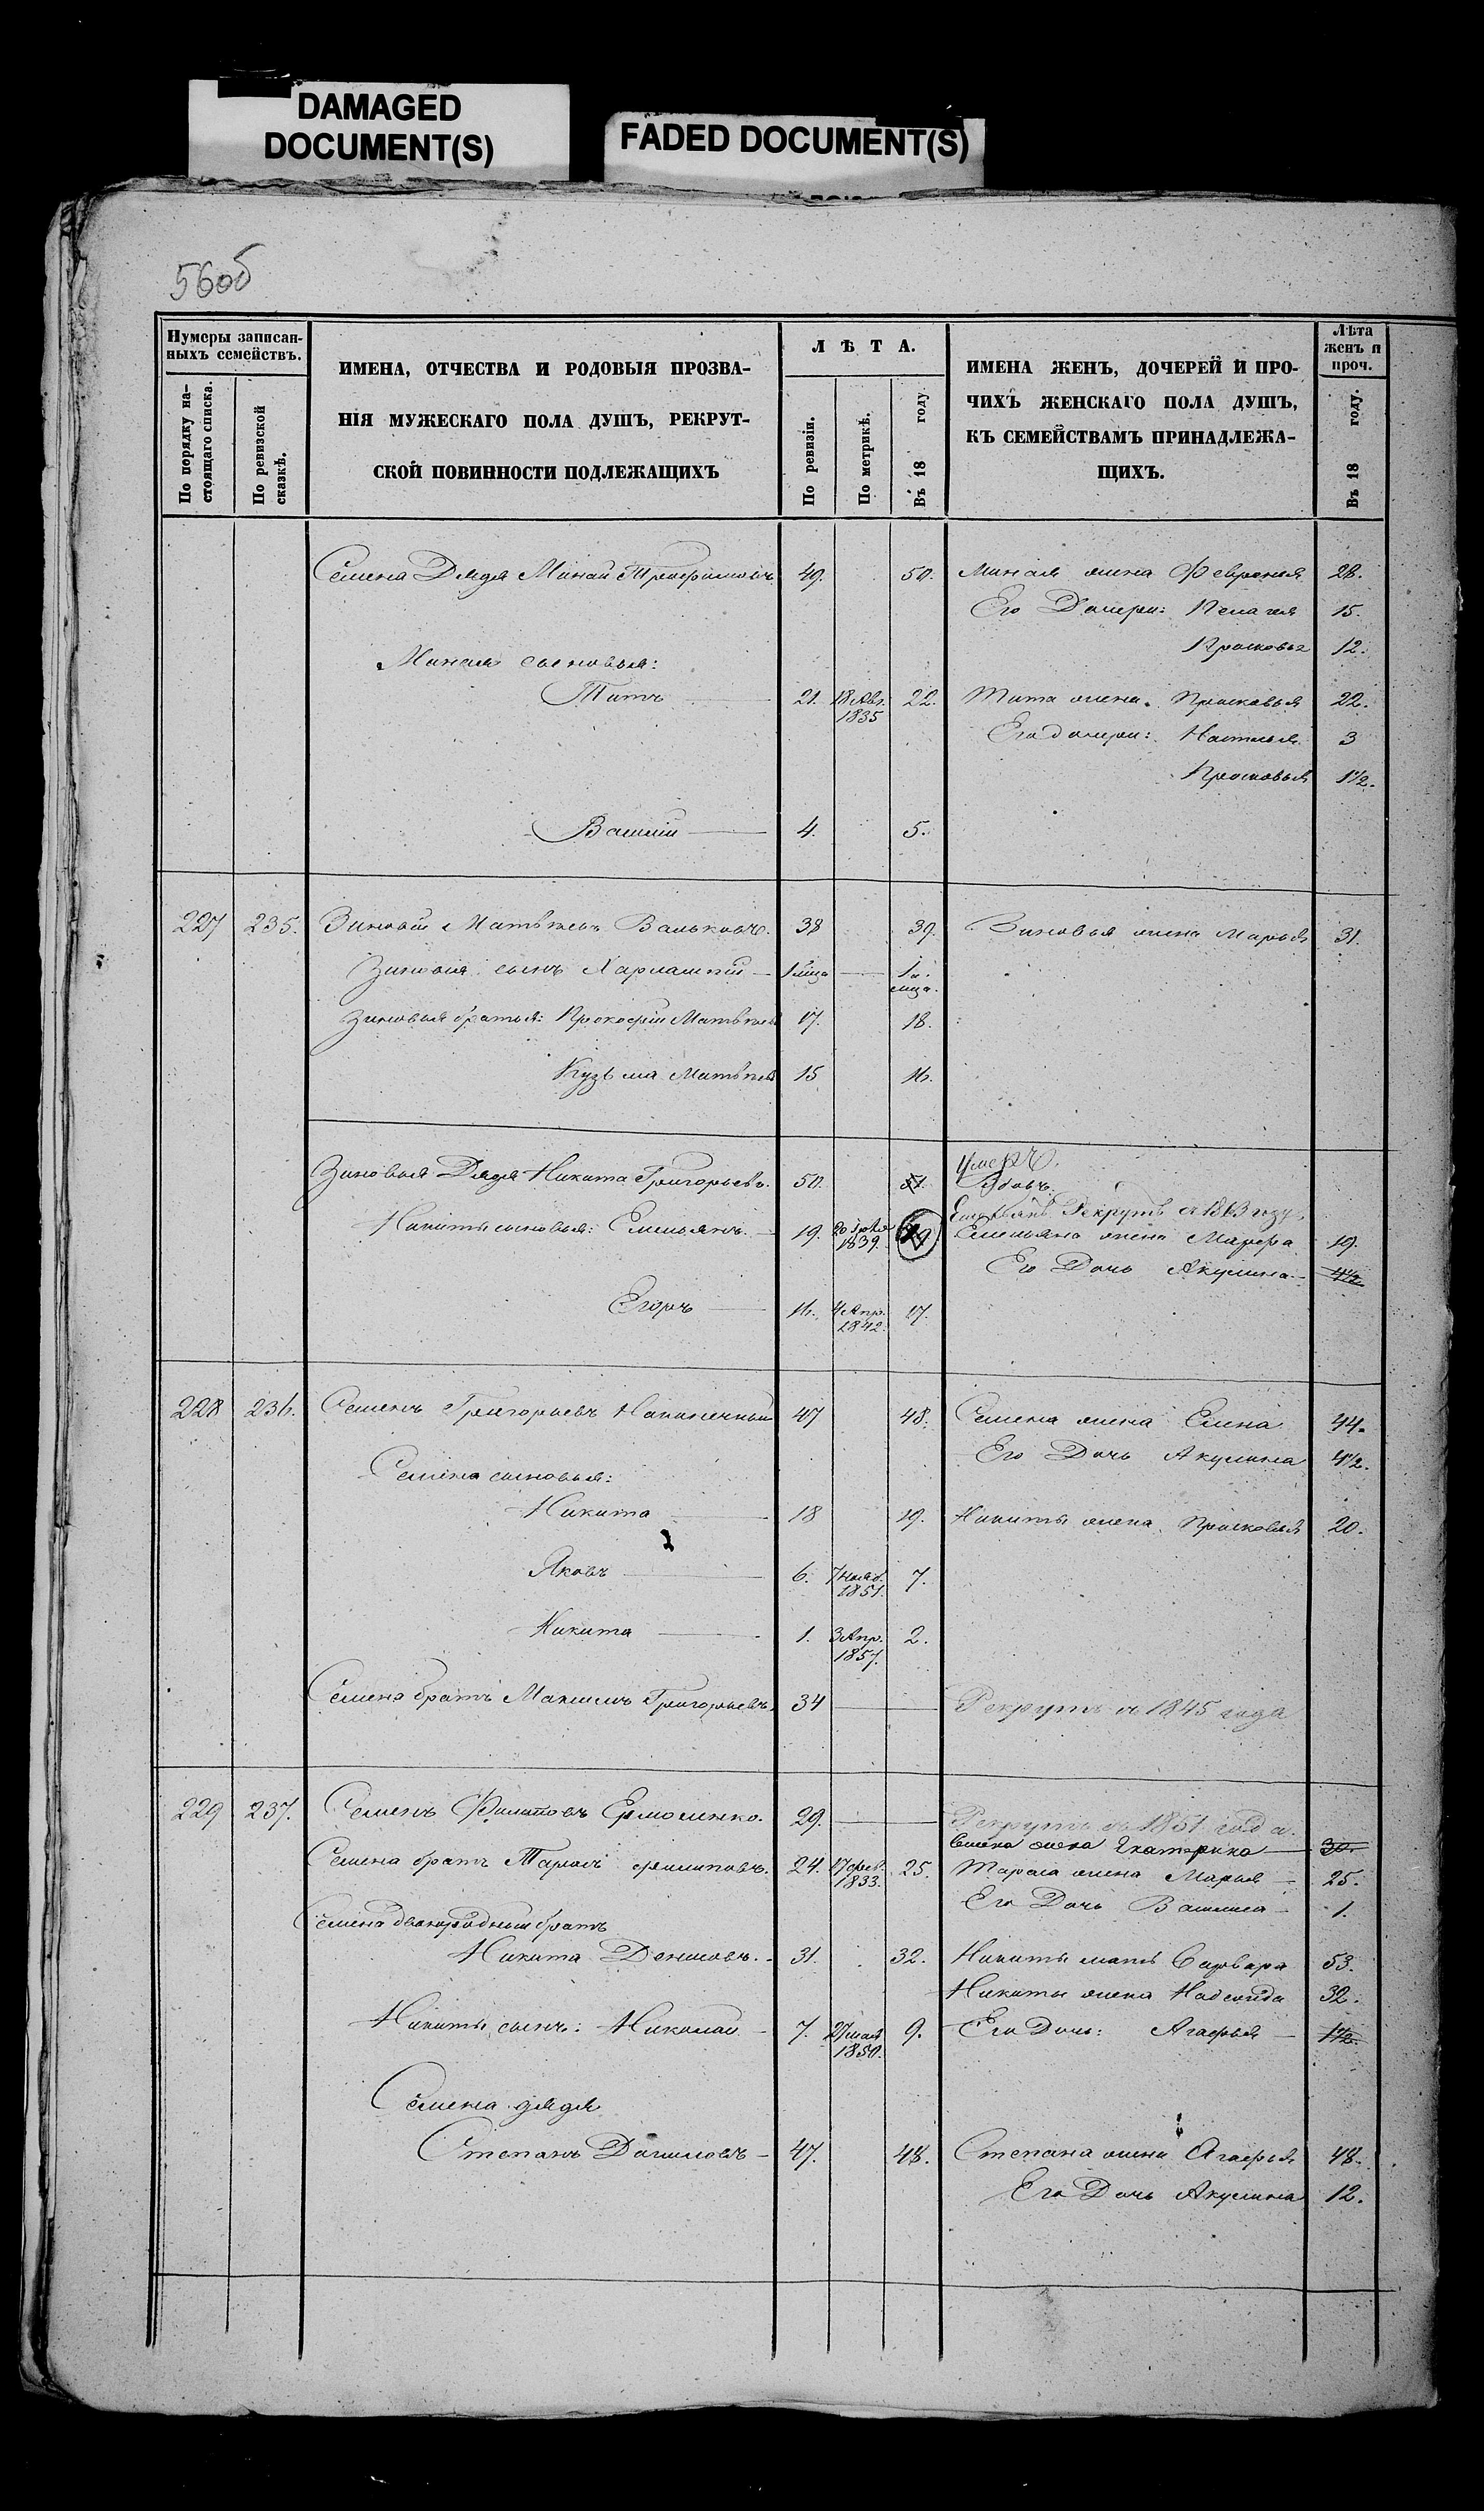 DAMAGED
DOCUMENT(S)
FADED DOCUMENT(S)
56об
Нумеры записан-
ныхъ семействъ.
По порядку на-
стоящаго списка.
По ревизской
сказкѣ.
ИМЕНА, ОТЧЕСТВА И РОДОВЫЯ ПРОЗВА-
НІЯ МУЖЕСКАГО ПОЛА ДУШЪ, РЕКРУТ-
СКОЙ ПОВИННОСТИ ПОДЛЕЖАЩИХЪ
ЛѢТА.
По ревизіи.
По метрикѣ.
Въ 18 году
ИМЕНА ЖЕНЪ, ДОЧЕРЕЙ И ПРО-
ЧИХЪ ЖЕНСКАГО ПОЛА ДУШЪ,
КЪ СЕМЕЙСТВАМЪ ПРИНАДЛЕЖА-
ЩИХЪ.
Лѣта
женъ и
проч.
Въ 18 году.
Семена Дядя Минай Трофимовъ 49. 50. Миная жена Февронья 28.
Его Дочери: Пелагея 15.
Прасковья 12.
Миная сыновья:
Титъ 21. 18 Авг. 1835 22. Тита жена Прасковья 22.
Его дочери: Настасья 3
Прасковья 1½.
Василій 4. 5.
227 235. Зиновій Матвѣевъ Вальковъ. 38 39. Зиновья жена Марья 31.
Зиновія сынъ Харлампій 1 мца 1 мца.
Зиновья братья: Прокофій Матвѣевъ 17. 18.
Кузьма Матвѣевъ 15 16.
Зиновья Дядя Никита Григорьевъ. 50. 51. Умеръ.
Вдовъ.
Емельянъ Рекрутъ съ 1863 году
Никиты сыновья: Емельянъ. 19. 20 1839. 19 Емельяна жена Марфа 19.
Его Дочь Акулина 1½
Егоръ 16. 4 Апр. 1842. 17.
228 236. Семенъ Григорьевъ 47 48. Семена жена Елена 44.
Его Дочь Акулина 4½.
Семена сыновья:
Никита 18 19. Никиты жена Прасковья 20.
Яковъ 6. 7 нояб. 1851. 7.
Никита 1. 3 Апр. 1857. 2.
Семена братъ Максимъ Григорьевъ 34 Рекрутъ съ 1845 года
229 237. Семенъ Филиповъ Ермоленко. 29. Рекрутъ съ 1851 года.
Семена жена Екатерина 30.
Семена братъ Тарасъ Филиповъ. 24. 17 фев. 1833. 25. Тараса жена Марья 25.
Его Дочь Василиса 1.
Семена двоюродный братъ
Никита Денисовъ. 31. 32. Никиты мать Варвара 53.
Никиты жена Надежда 32.
Никиты сынъ: Николай 7. 27 мая 1850. 9. Его Дочь: Агафья 1½.
Семена дядя
Степанъ Даниловъ 47. 48. Степана жена Агафья 48.
Его Дочь Акулина 12.